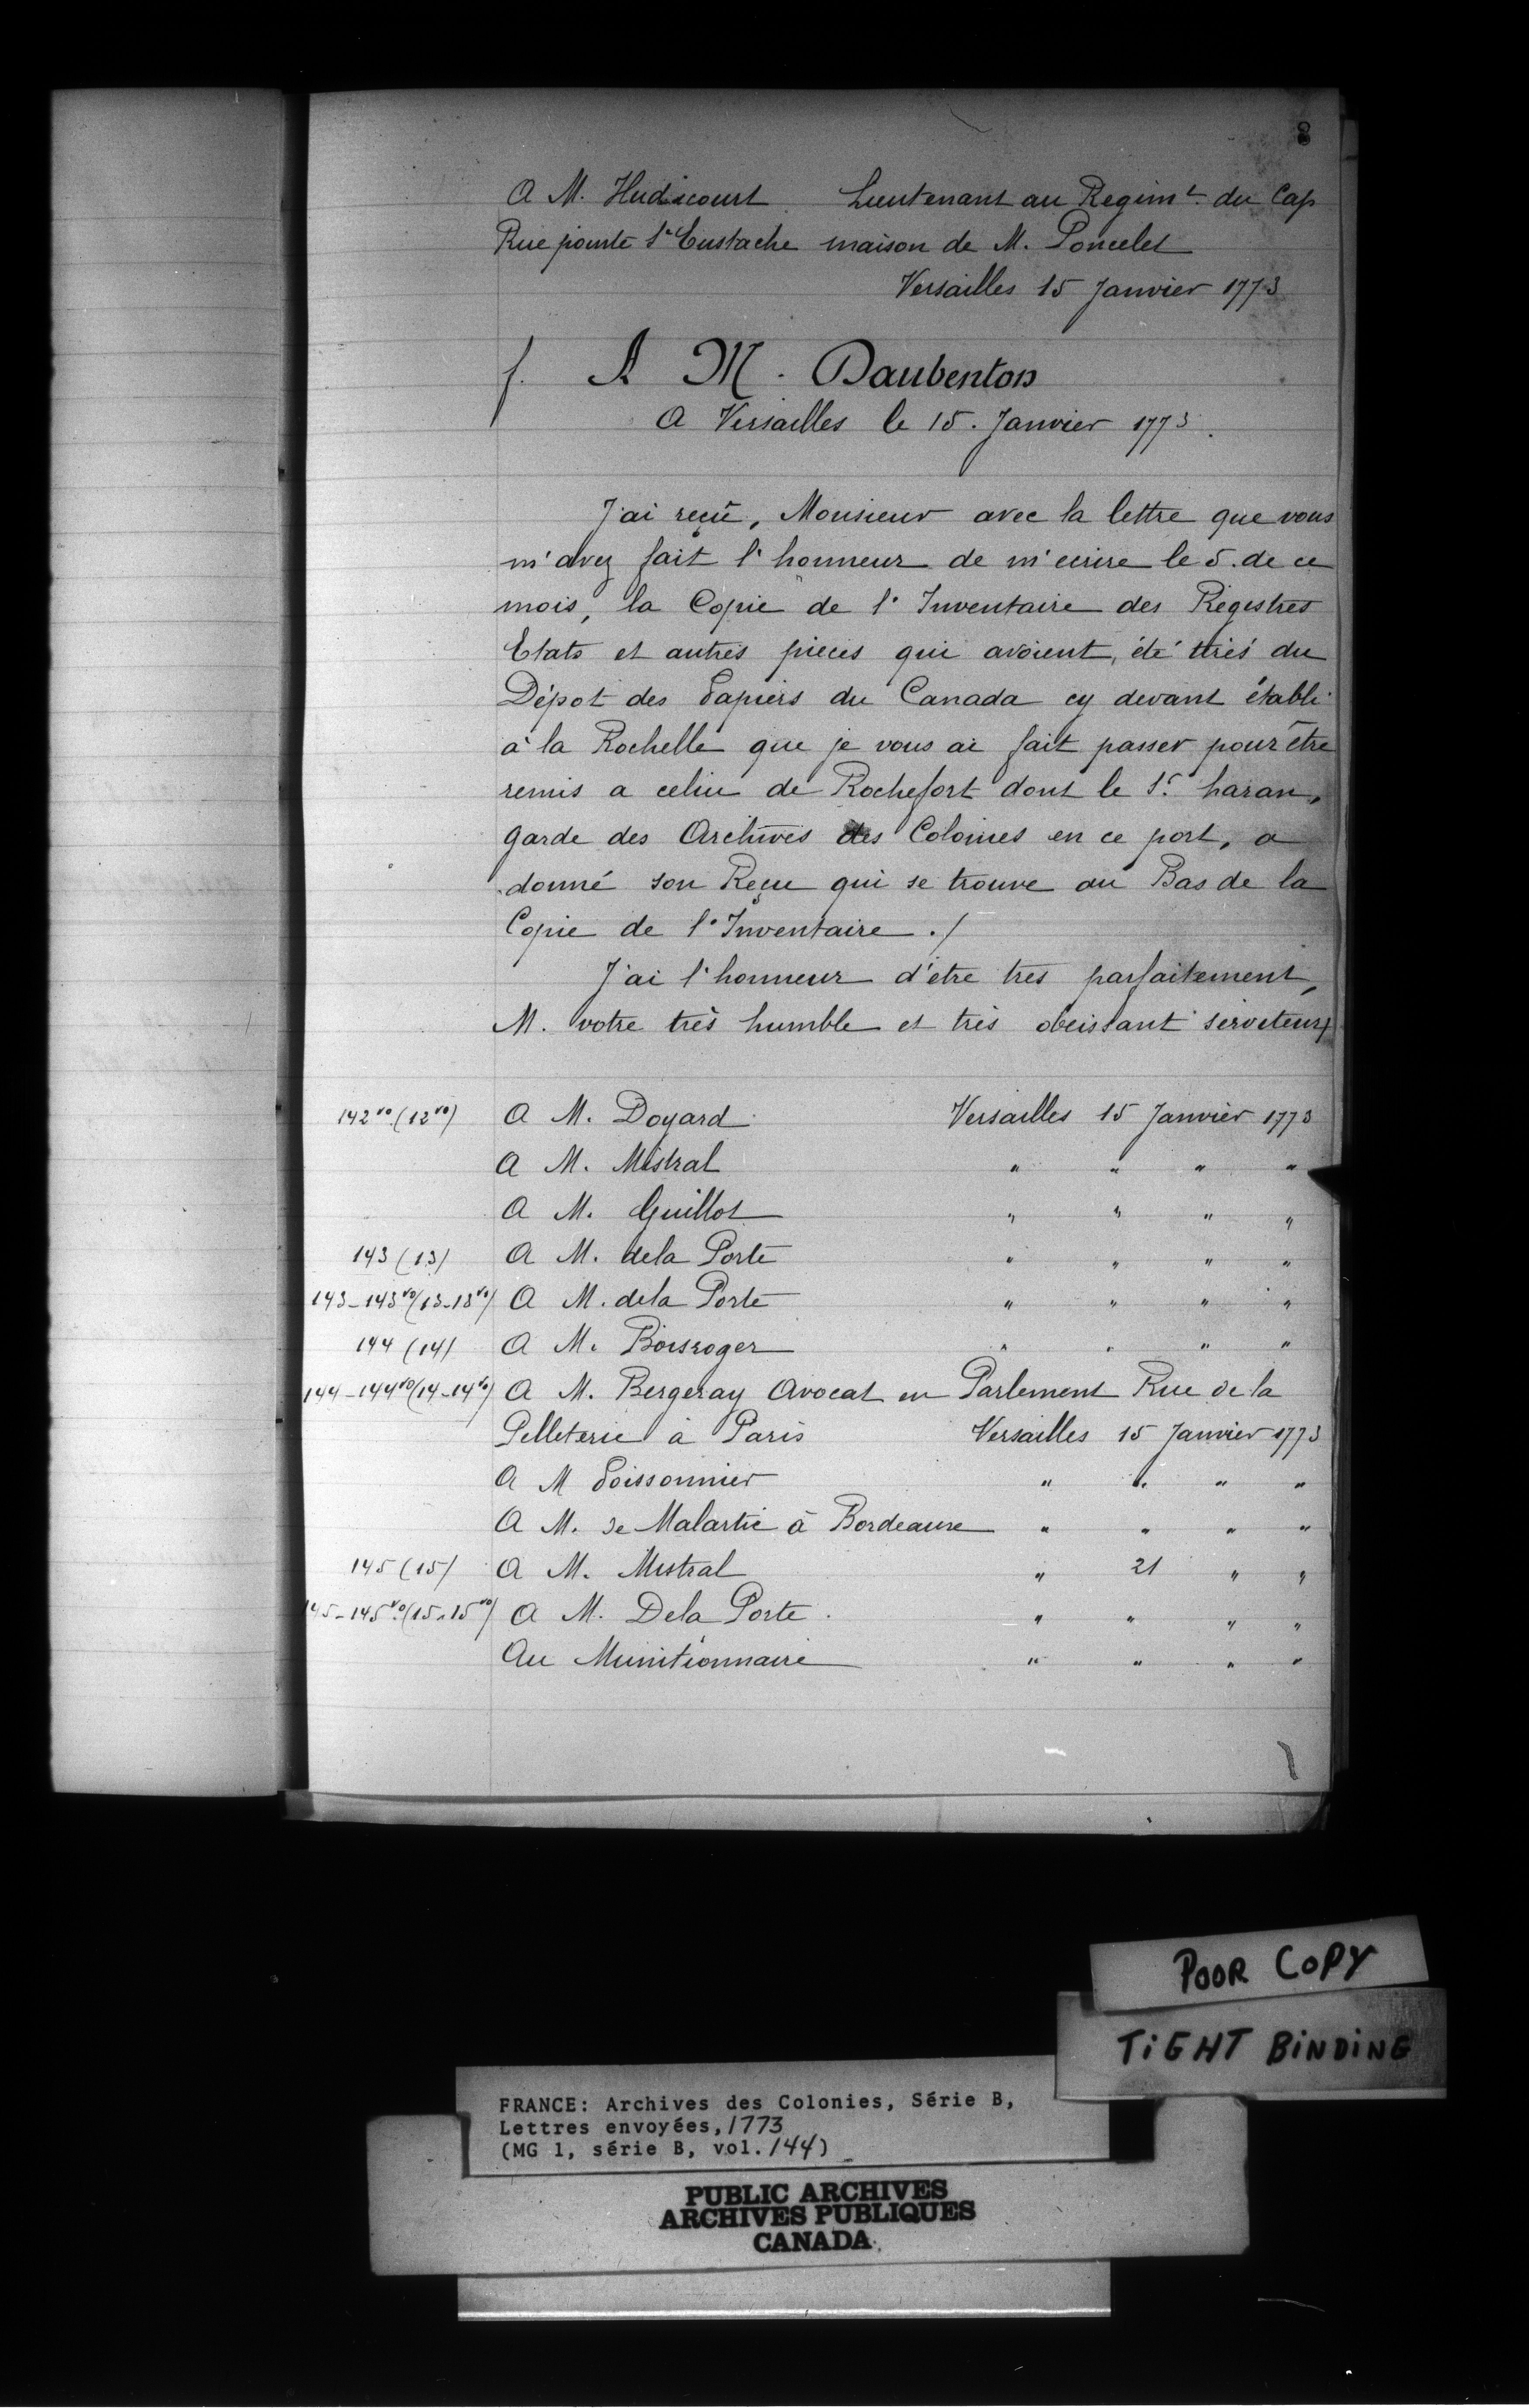 8
A M. Hudicourt Lieutenant au Regimt. du Cap
Rue pointe St Eustache maison de M. Poncelet
Versailles 15 Janvier 1773
f. A M. Daubenton
A Versailles le 15. Janvier 1773.
J'ai reçu, Monsieur avec la lettre que vous
m'avez fait l'honneur de m'ecrire le 5. de ce
mois, la Copie de l'Inventaire des Registres
Etats et autres pieces qui avoient, été tirés du
Dépot des Papiers du Canada cy devant établi
à la Rochelle que je vous ai fait passer pour être
remis a celui de Rochefort dont le Sr. haran,
garde des Archives des Colonies en ce port, a
donné son Reçu qui se trouve au Bas de la
Copie de l'Inventaire ./
J'ai l'honneur d'etre tres parfaitement,
M. votre très humble et très obeissant serviteur
142vo.(12vo) A M. Doyard Versailles 15 Janvier 1773
A M. Mistral " " " "
A M. Guillot " " " "
143 (13) A M. dela Porte " " " "
143-143vo(13-13vo) A M. dela Porte " " " "
144 (14) A M. Boisroger " " " "
144-144vo(14-14vo) A M. Bergeray Avocat en Parlement Rue de la
Pelleterie à Paris Versailles 15 Janvier 1773
A M Poissonnier " " " "
A M. de Malartic à Bordeaux " " " "
145 (15) A M. Mistral " 21 " "
145-145vo.(15-15vo) A M. Dela Porte. " " " "
Au Munitionnaire " " " "
POOR COPY
TiGHT BiNDiNG
FRANCE: Archives des Colonies, Série B,
Lettres envoyées, 1773
(MG 1, série B, vol. 144)
PUBLIC ARCHIVES
ARCHIVES PUBLIQUES
CANADA